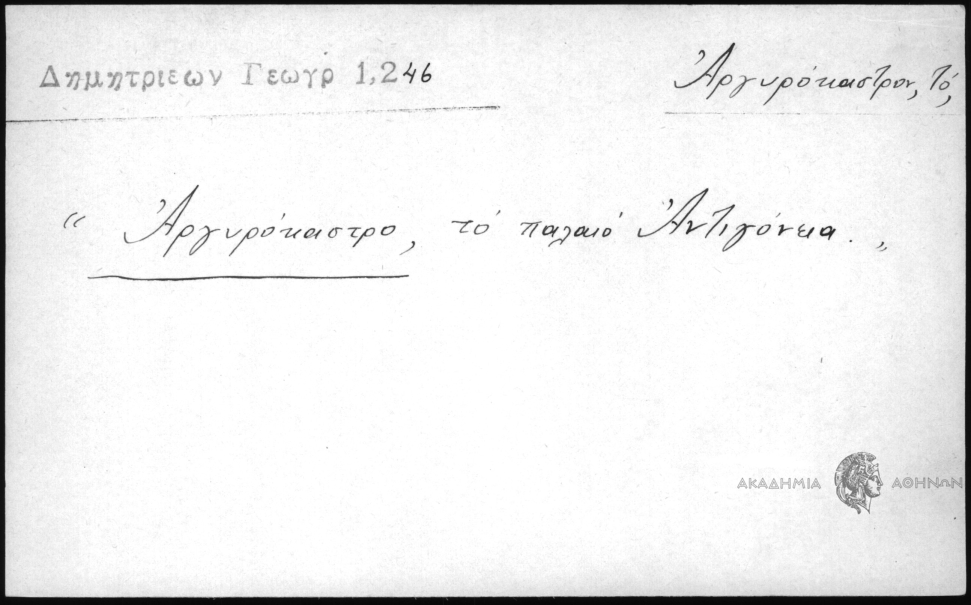 Δημητριεων Γεωγρ 1,246
Ἀργυρόκαστρον, τό,
“ Ἀργυρόκαστρο, τό παλαιό Ἀντιγόνεια. „
ΑΚΑΔΗΜΙΑ ΑΘΗΝΩΝ